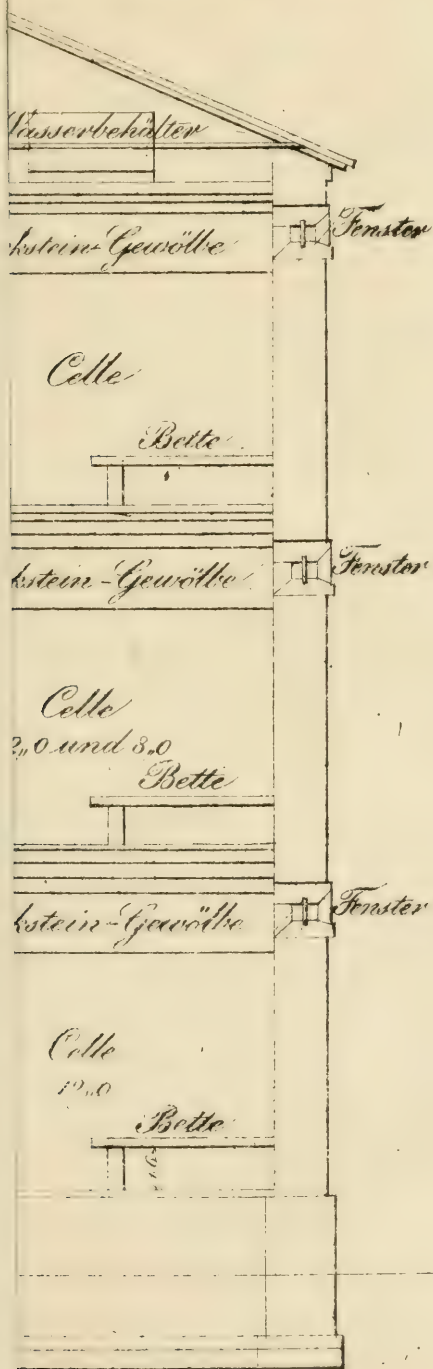 Wasserbehälter
kstein-Gewölbe Fenster
Celle
Bette
kstein-Gewölbe Fenster
Celle
2,,0 und 8,,0
Bette
kstein-Gewölbe Fenster
Celle
Bette